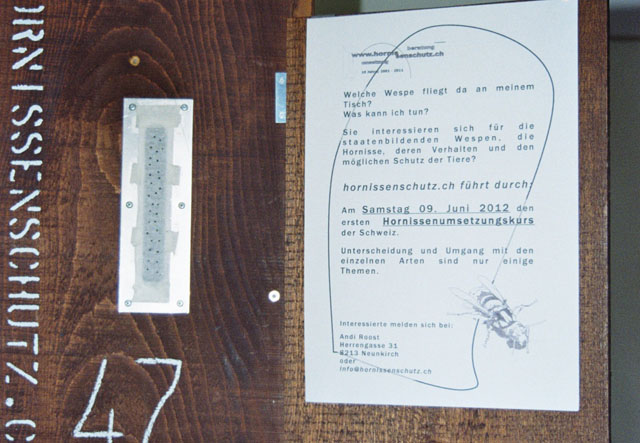 ORNISSENSCHUTZ.C
47
beratung
www.hornissenschutz.ch
umsiedlung
10 Jahre 2001 - 2011
Welche Wespe fliegt da an meinem
Tisch?
Was kann ich tun?
Sie interessieren sich für die
staatenbildenden Wespen, die
Hornisse, deren Verhalten und den
möglichen Schutz der Tiere?
hornissenschutz.ch führt durch:
Am Samstag 09. Juni 2012 den
ersten Hornissenumsetzungskurs
der Schweiz.
Unterscheidung und Umgang mit den
einzelnen Arten sind nur einige
Themen.
Interessierte melden sich bei:
Andi Roost
Herrengasse 31
8213 Neunkirch
oder
info@hornissenschutz.ch